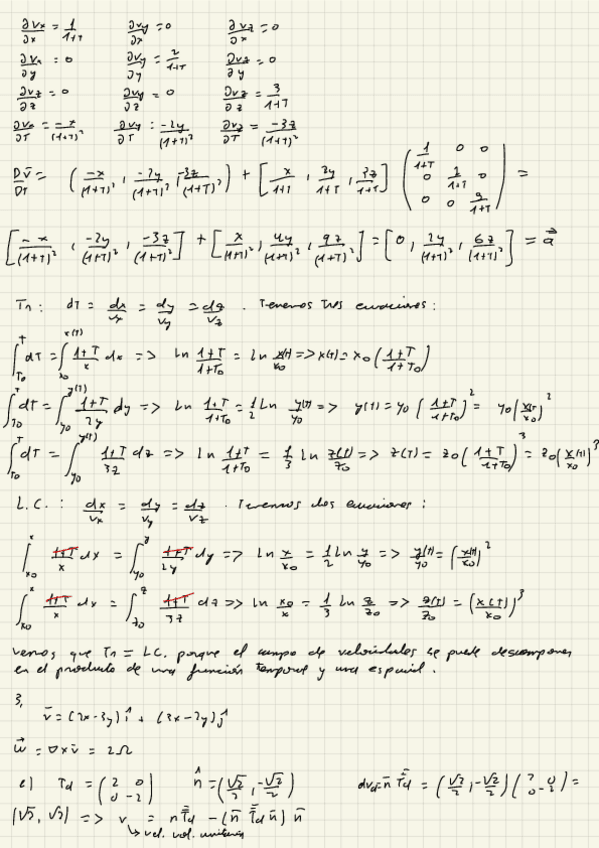 ∂vx/∂x = 1/(1+T)   ∂vy/∂x = 0   ∂vz/∂x = 0
∂vx/∂y = 0   ∂vy/∂y = 2/(1+T)   ∂vz/∂y = 0
∂vz/∂z = 0   ∂vy/∂z = 0   ∂vz/∂z = 3/(1+T)
∂vx/∂T = -x/(1+T)²   ∂vy/∂T = -2y/(1+T)²   ∂vz/∂T = -3z/(1+T)²
Dv̄/DT = (-x/(1+T)², -2y/(1+T)², -3z/(1+T)²) + [x/(1+T), 2y/(1+T), 3z/(1+T)] (1/(1+T) 0 0 / 0 2/(1+T) 0 / 0 0 3/(1+T)) =
[-x/(1+T)², -2y/(1+T)², -3z/(1+T)²] + [x/(1+T)², 4y/(1+T)², 9z/(1+T)²] = [0, 2y/(1+T)², 6z/(1+T)²] = a⃗
Tn: dT = dx/vx = dy/vy = dz/vz . Tenemos tres ecuaciones:
∫_{T0}^{T} dT = ∫_{x0}^{x(T)} (1+T)/x dx => ln (1+T)/(1+T0) = ln x(T)/x0 => x(T) = x0 ((1+T)/(1+T0))
∫_{T0}^{T} dT = ∫_{y0}^{y(T)} (1+T)/2y dy => ln (1+T)/(1+T0) = 1/2 ln y(T)/y0 => y(T) = y0 ((1+T)/(1+T0))² = y0 (x(T)/x0)²
∫_{T0}^{T} dT = ∫_{y0}^{y(T)} (1+T)/3z dz => ln (1+T)/(1+T0) = 1/3 ln z(T)/z0 => z(T) = z0 ((1+T)/(1+T0))³ = z0 (x(T)/x0)³
L.C.: dx/vx = dy/vy = dz/vz . Tenemos dos ecuaciones:
∫_{x0}^{x} (1+T)/x dx = ∫_{y0}^{y} (1+T)/2y dy => ln x/x0 = 1/2 ln y/y0 => y(T)/y0 = (x(T)/x0)²
∫_{x0}^{x} (1+T)/x dx = ∫_{z0}^{z} (1+T)/3z dz => ln x0/x = 1/3 ln z/z0 => z(T)/z0 = (x(T)/x0)³
vemos que Tn = LC. porque el campo de velocidades se puede descomponer
en el producto de una función temporal y una espacial.
3,
v̄ = (2x-3y) î + (3x-2y) ĵ
w⃗ = ∇×v̄ = 2Ω
c) Td = (2 0 / 0 -2)   n̂ = (√2/2, -√2/2)   dvd = n̄ T̿d = (√2/2, -√2/2) (2 0 / 0 -2) =
(√2, √2) => v = n T̿d - (n̄ T̿d n̄) n̄
↳ vel. vol. unitaria